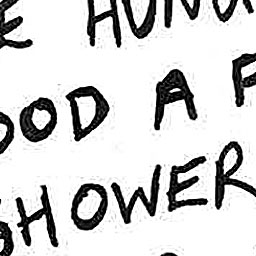 E HUN
OOD A F
SHOWER